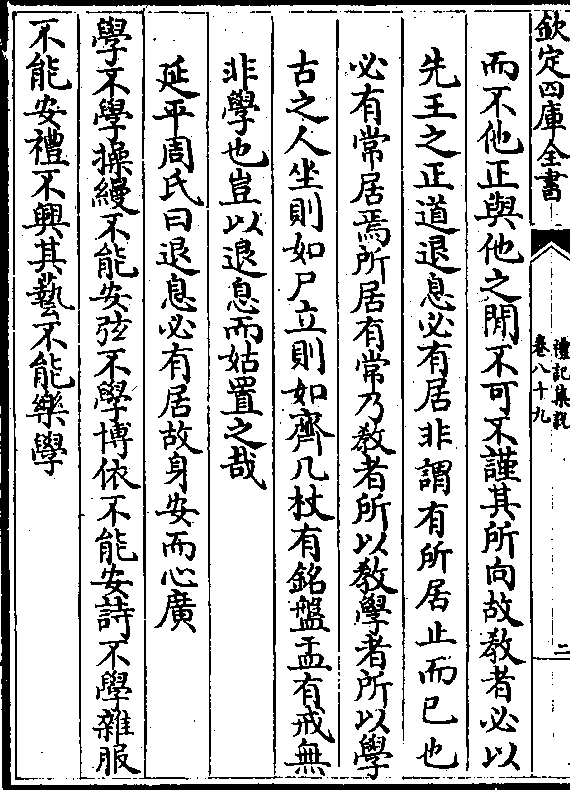 欽定四庫全書
禮記集說
卷八十九
二
而不他正與他之閒不可不謹其所向故敎者必以
先王之正道退息必有居非謂有所居止而已也
必有常居焉所居有常乃敎者所以敎學者所以學
古之人坐則如尸立則如齊几杖有銘盤盂有戒無
非學也豈以退息而姑置之哉
延平周氏曰退息必有居故身安而心廣
學不學操縵不能安弦不學博依不能安詩不學雜服
不能安禮不興其藝不能樂學